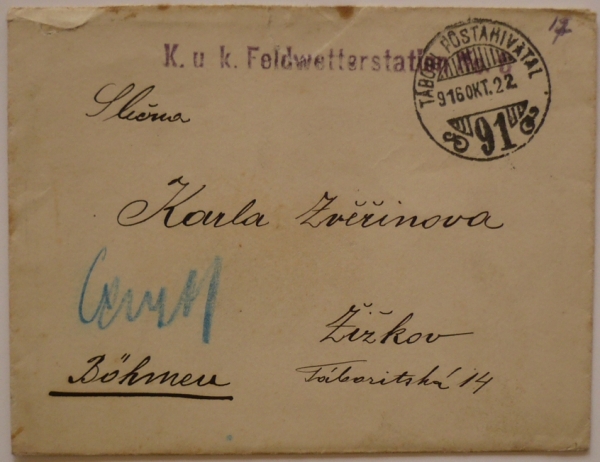 17
K. u k. Feldwetterstation
TÁBORI POSTAHIVATAL
916 OKT. 22
91
Slečna
Karla Zvěřinova
Žižkov
Böhmen
Táboritská 14